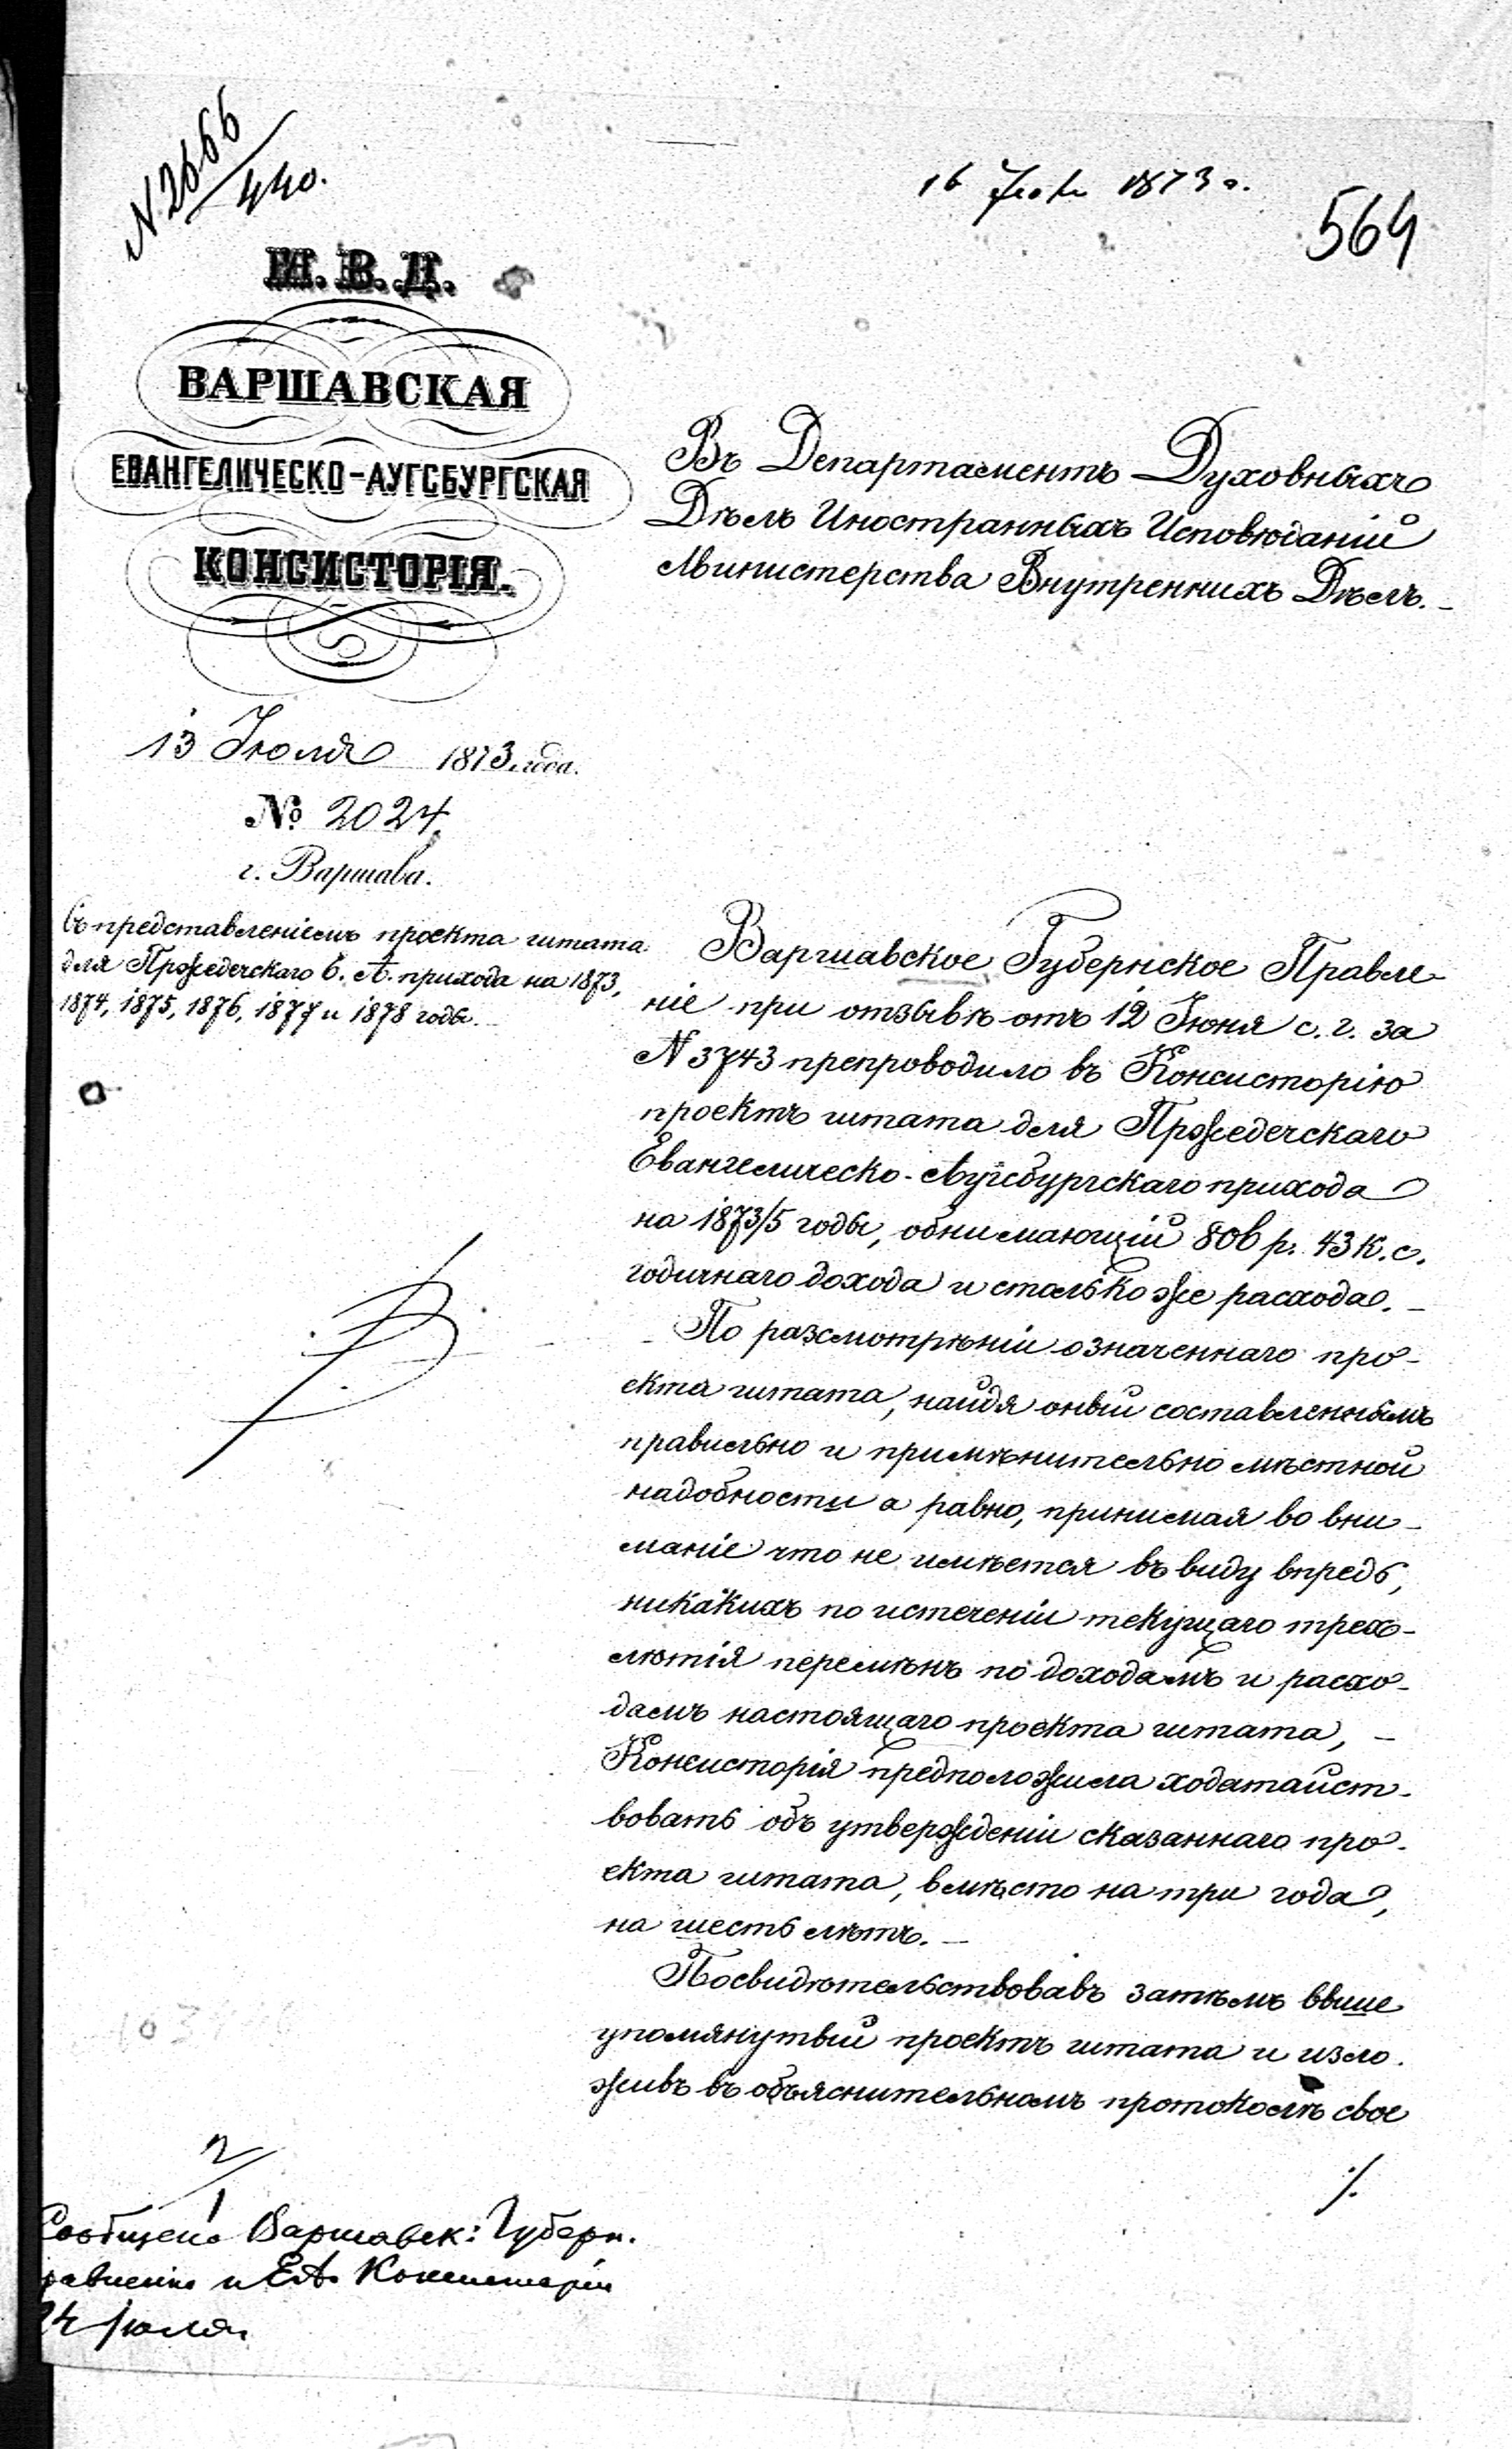 N 2666
440.
16 Іюля 1873 г.
564
М. В. Д.
ВАРШАВСКАЯ
ЕВАНГЕЛИЧЕСКО-АУГСБУРГСКАЯ
КОНСИСТОРІЯ.
13 Іюля 1873 года.
№ 2024.
г. Варшава.
Съ представленіемъ проекта штата
для Пржедечскаго Е. А. прихода на 1873,
1874, 1875, 1876, 1877 и 1878 годы.
Въ Департаментъ Духовныхъ
Дѣлъ Иностранныхъ Исповѣданій
Министерства Внутреннихъ Дѣлъ.
Варшавское Губернское Правле-
ніе при отзывѣ отъ 12 Іюня с. г. за
N 3743 препроводило въ Консисторію
проектъ штата для Пржедечскаго
Евангелическо-Аугсбургскаго прихода
на 1873/5 годы, обнимающій 806 р. 43 к. с.
годичнаго дохода и столько же расхода. —
По разсмотрѣніи означеннаго про-
екта штата, найдя оный составленнымъ
правильно и примѣнительно мѣстной
надобности а равно, принимая во вни-
маніе что не имѣется въ виду впредь,
никакихъ по истеченіи текущаго трех-
лѣтія перемѣнъ по доходамъ и расхо-
дамъ настоящаго проекта штата, —
Консисторія предположила ходатайст-
вовать объ утвержденіи сказаннаго про-
екта штата, вмѣсто на три года,
на шесть лѣтъ. —
Посвидѣтельствовавъ затѣмъ выше
упомянутый проектъ штата и изло-
живъ въ объяснительномъ протоколѣ свое
./.
Сообщено Варшавск: Губерн.
равленію и ЕА. Консисторіи
24 Іюля